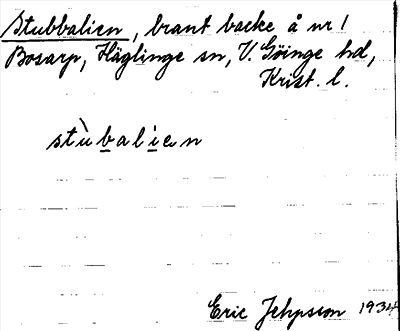 Stubbalien, brant backe å nr 1
Bosarp, Häglinge sn, V. Göinge hd,
Krist. l.
stùbalien
Eric Jehpson 1934